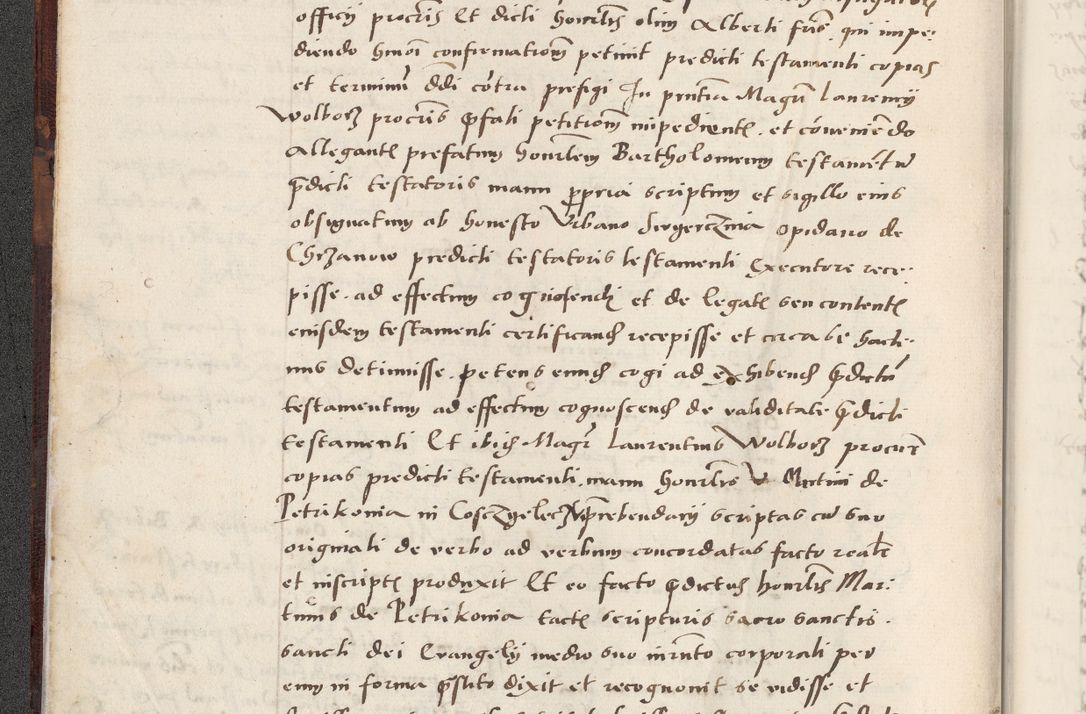 officij procuris Et dicti honorlis olim Alberti fris, qui impe-
diendo hmoi confirmationem petiuit predicti testamenti copias
et terminum ddi contra prefigi In pntia Magri Laurencij
Wolborz procuris prefati petitionem impedientis. et conueniendo
Allegantis prefatum honorlem Bartholomeum testamentum
predicti testatoris manu propria scriptum et sigillo eius
obsignatum ab honesto Vrbano opidano de
Chrzanow predicti testatoris testamenti Executore rece-
pisse. ad effectum cognoscendi et de legatis seu contentis
eiusdem testamenti certificandum recepisse et circa se hacte-
nus detinuisse. petens eundem cogi ad exhibendum predictum
testamentum ad effectum cognoscendi de validitate predicti
testamenti Et ibidem Magr Laurentius Wolborz procur
copias predicti testamenti, manu honorlis Martini de
Petrikonia in prebendarij scriptas cum suo
originali de verbo ad verbum concordatas facto reale
et inscriptis produxit Et eo facto predictus honorlis Mar-
tinus de Petrikonia tactis scripturis sacro sanctis.
sancti dei Euangelij medio suo iurmto corporali per
eum in forma prestito dixit et recognouit se vidisse et